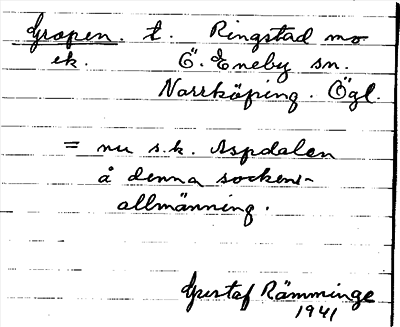 Gropen. t. Ringstad mo
ek. Ö. Eneby sn.
Norrköping. Ögl.
= nu s.k. Aspdalen
å denna sockens-
allmänning.
Gustaf Rämminge
1941